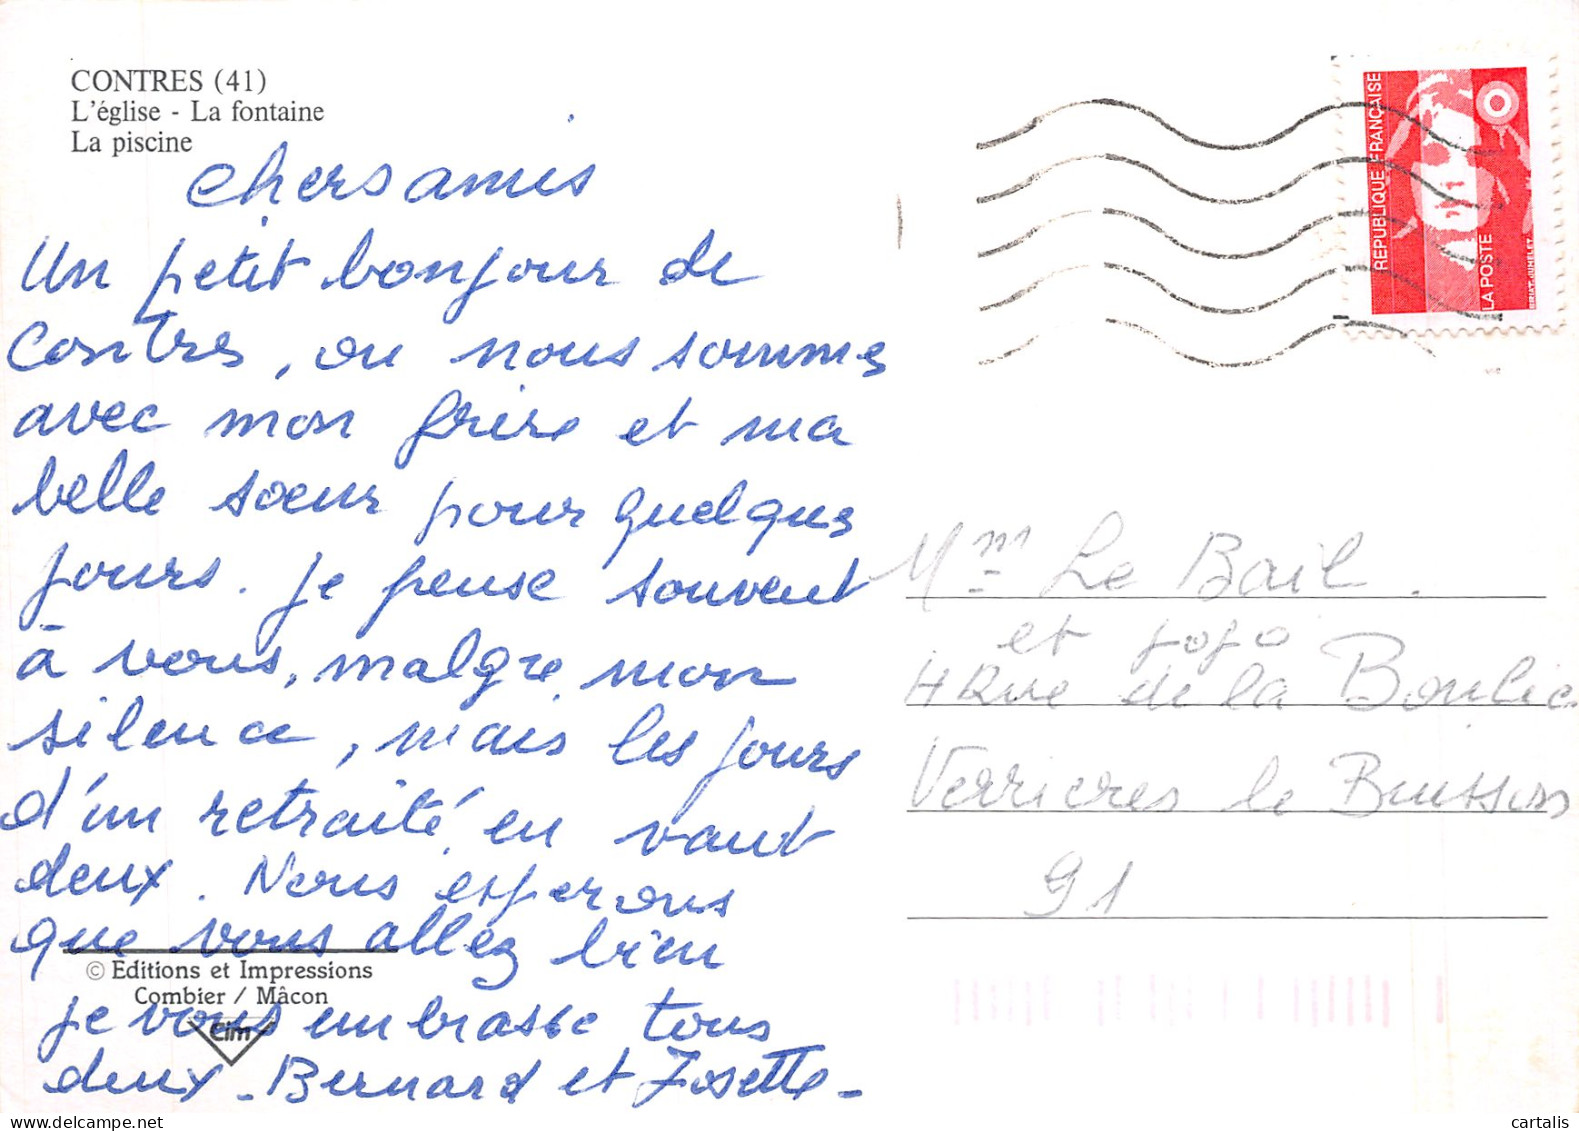 CONTRES (41)
L'église - La fontaine
La piscine
chers amis
Un petit bonjour de
Contres, ou nous sommes
avec mon frère et ma
belle soeur pour quelques
jours. je pense souvent
à vous, malgre mon
silence, mais les jours
d'un retraité en vaut
deux. Nous esperons
que vous allez bien
je vous embrasse tous
deux - Bernard et Josette -
© Editions et Impressions
Combier / Mâcon
cim
REPUBLIQUE FRANÇAISE
LA POSTE
BRIAT-JUMELET
Mme Le Bail.
et jojo
4 Rue de la Boulie
Verrieres le Buisson
91
cartalis